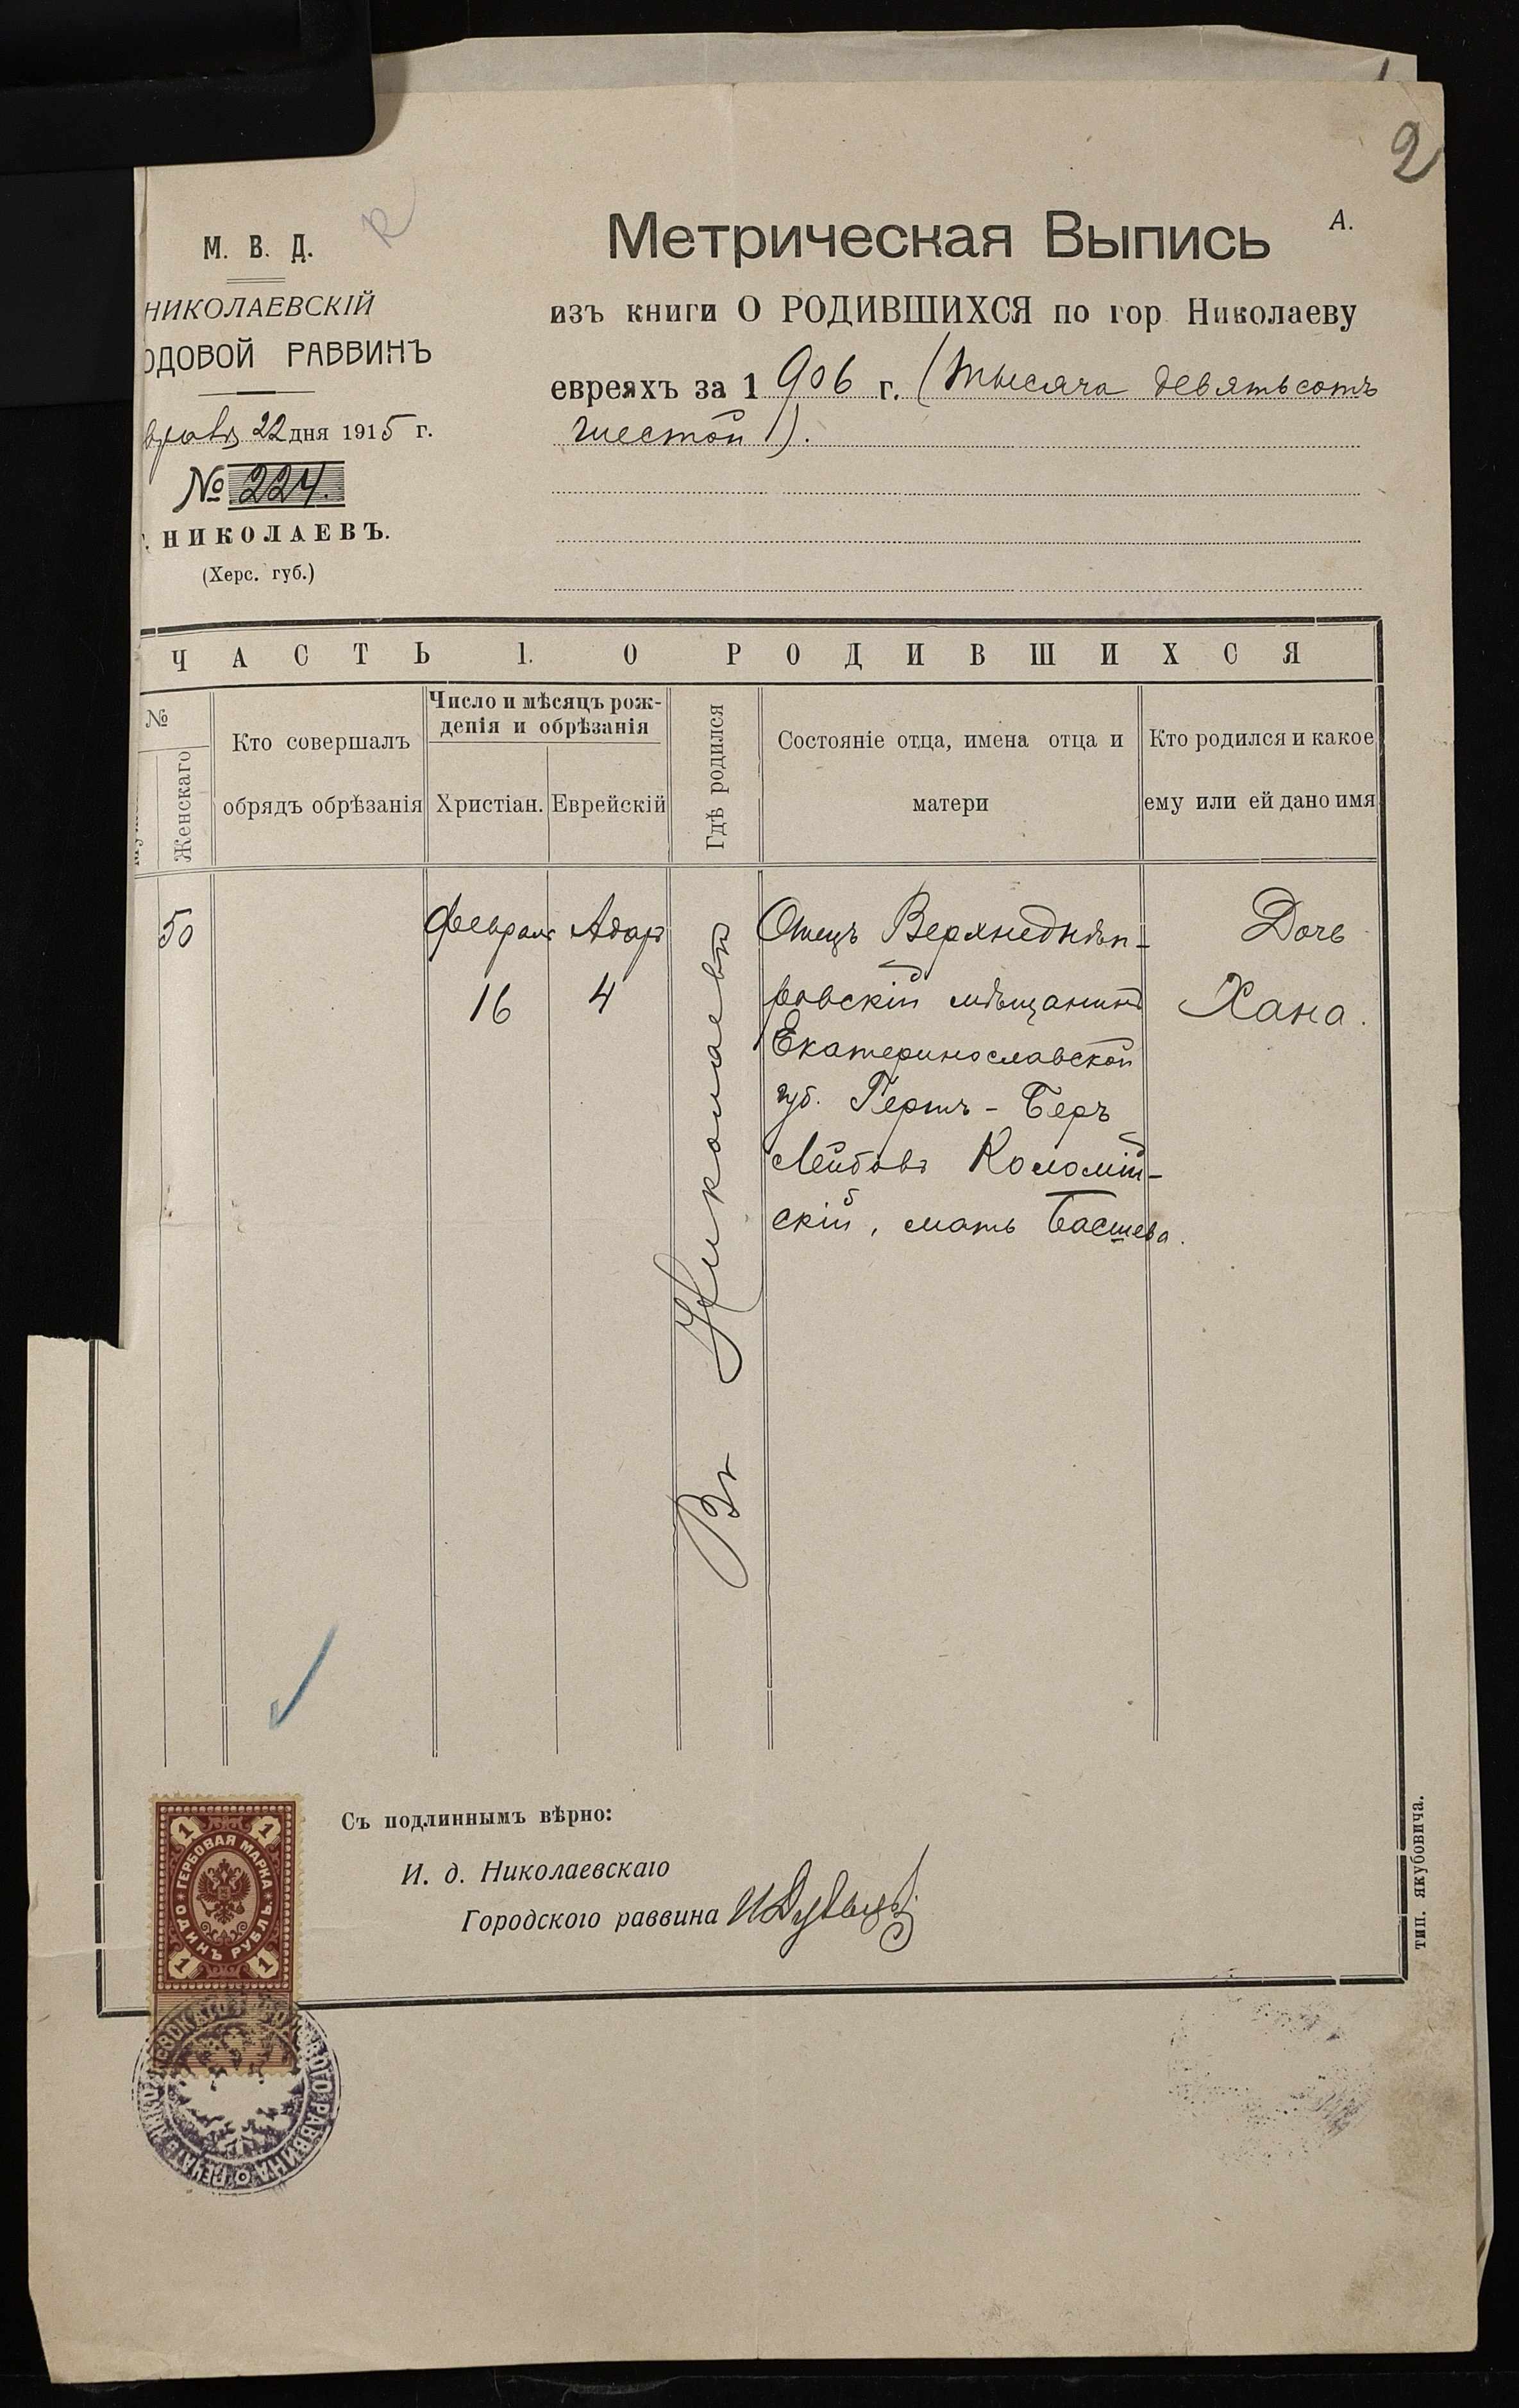 2
А.
М. В. Д.
НИКОЛАЕВСКІЙ
ОДОВОЙ РАВВИНЪ
22 дня 1915 г.
№ 224.
г. НИКОЛАЕВЪ.
(Херс. губ.)
Метрическая Выпись
изъ книги О РОДИВШИХСЯ по гор Николаеву
евреяхъ за 1906 г. (тысяча девятьсотъ
шестой).
ЧАСТЬ 1. О РОДИВШИХСЯ
№
Женскаго
Кто совершалъ
обрядъ обрѣзанія
Число и мѣсяцъ рож-
денія и обрѣзанія
Христіан.
Еврейскій
Гдѣ родился
Состояніе отца, имена отца и
матери
Кто родился и какое
ему или ей дано имя
50
Февраля
16
Адаръ
4
Въ Николаевѣ
Отецъ Верхнеднѣп-
ровскій мѣщанинъ
Екатеринославской
губ. Герш-Беръ
Лейбовъ Коломій-
скій, мать Басшева.
Дочь
Хана.
Съ подлиннымъ вѣрно:
И. д. Николаевскаго
Городского раввина
ГЕРБОВАЯ МАРКА
ОДИНЪ РУБЛЬ
1
1
1
1
ПЕЧАТЬ НИКОЛАЕВСКАГО РАВВИНА
тип. якубовича.